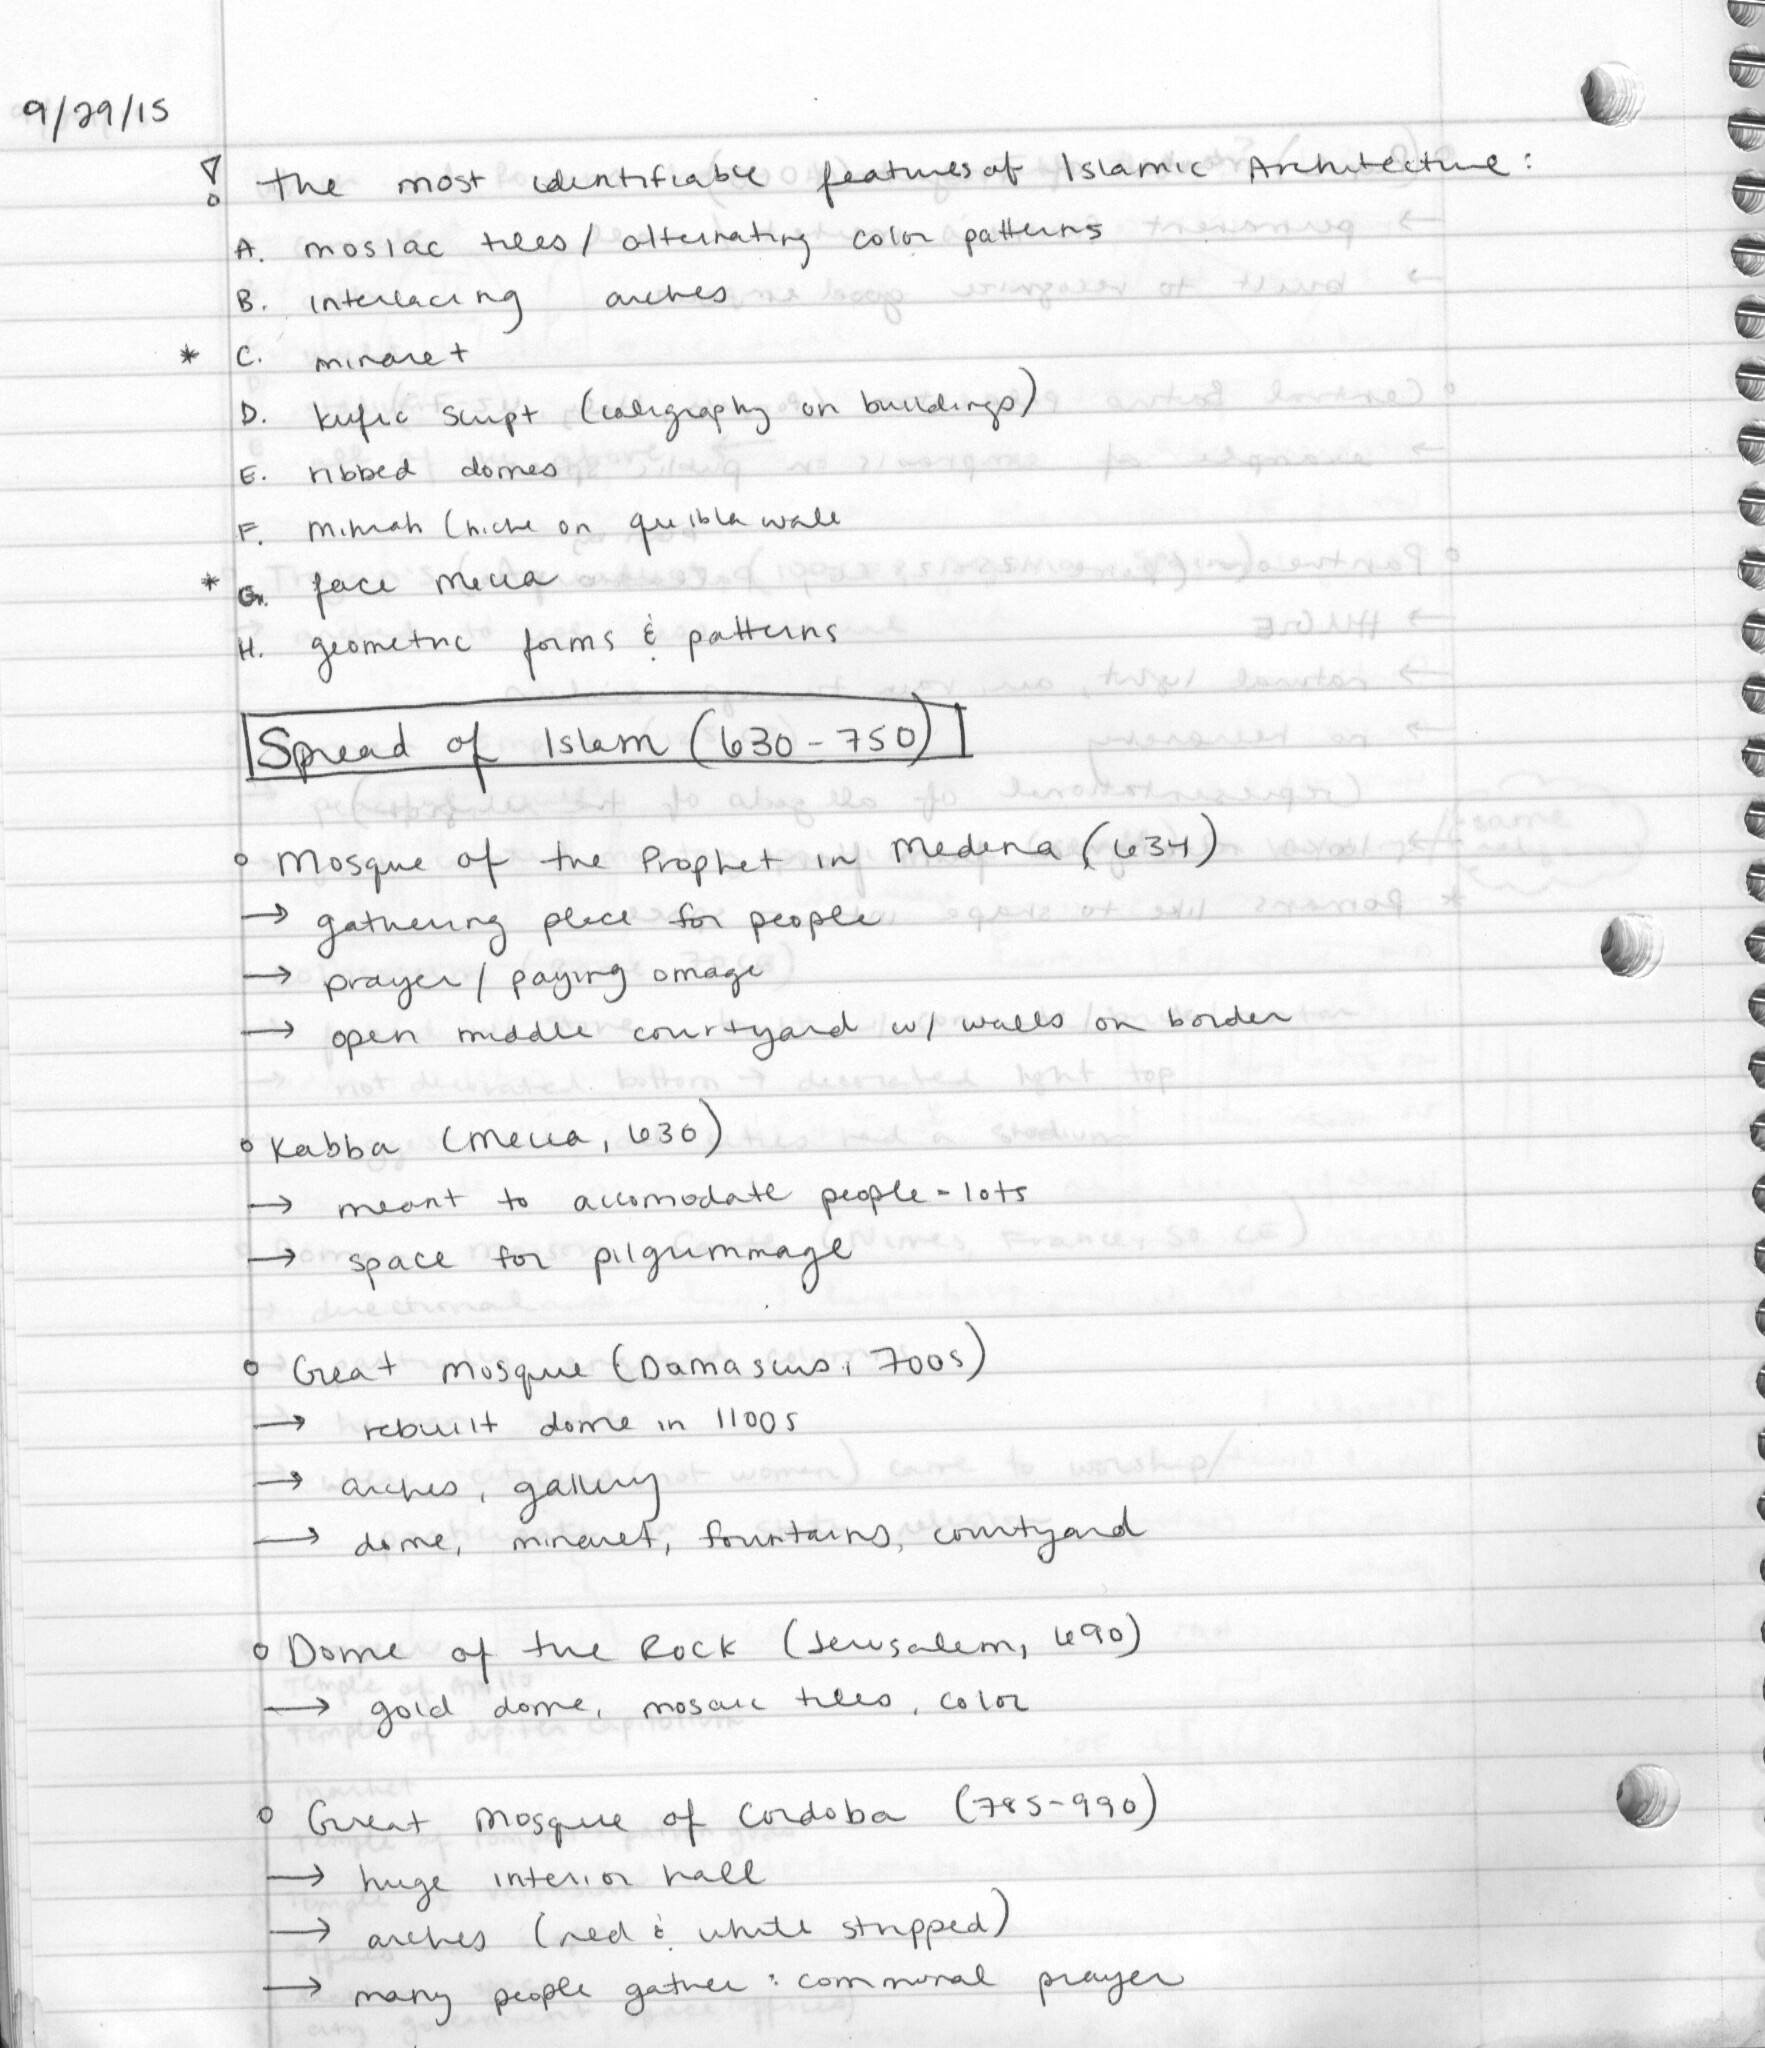 9/29/15
! The most identifiable features of Islamic Architecture:
A. mosiac tiles / alternating color patterns
B. interlacing arches
* C. minaret
D. kufic script (caligraphy on buildings)
E. ribbed domes
F. mihrah (niche on quibla wall
* G. face Mecca
H. geometric forms & patterns
Spread of Islam (630-750)
o Mosque of the Prophet in Medena (634)
→ gathering place for people
→ prayer / paying omage
→ open middle courtyard w/ walls on border
o Kabba (Mecca, 630)
→ meant to accomodate people - lots
→ space for pilgrummage
o Great Mosque (Damascus, 700s)
→ rebuilt dome in 1100s
→ arches, gallery
→ dome, minaret, fountains, courtyard
o Dome of the Rock (Jerusalem, 690)
→ gold dome, mosaic tiles, color
o Great Mosque of Cordoba (785-990)
→ huge interior hall
→ arches (red & white stripped)
→ many people gather: communal prayer